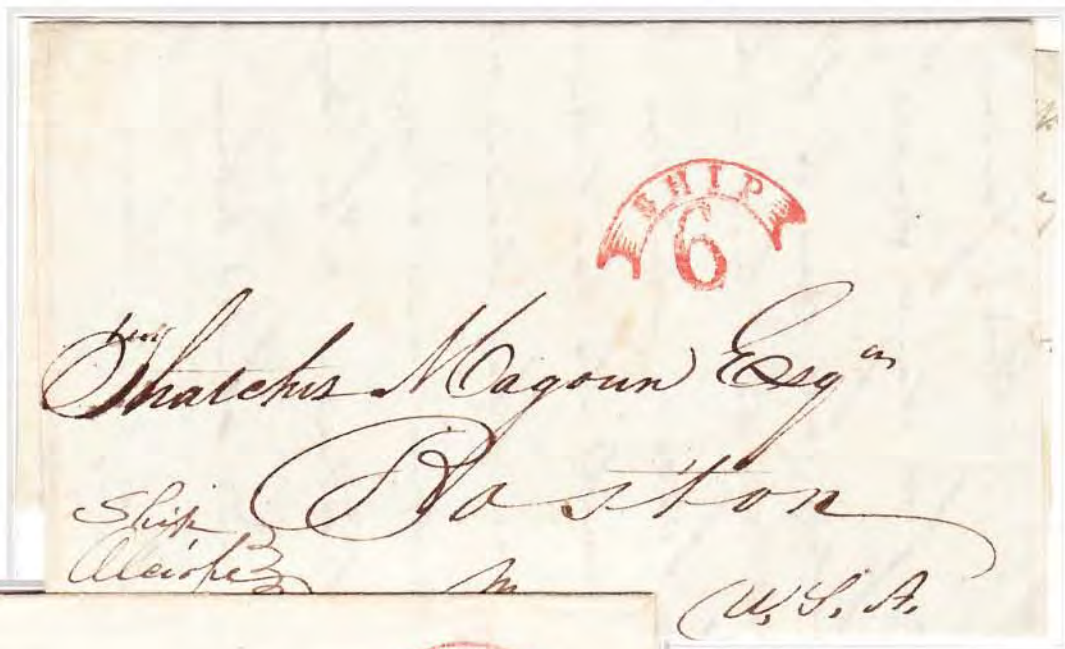 SHIP
6
Thatcher Magoun Esqr
Boston
Ship
U, S, A.